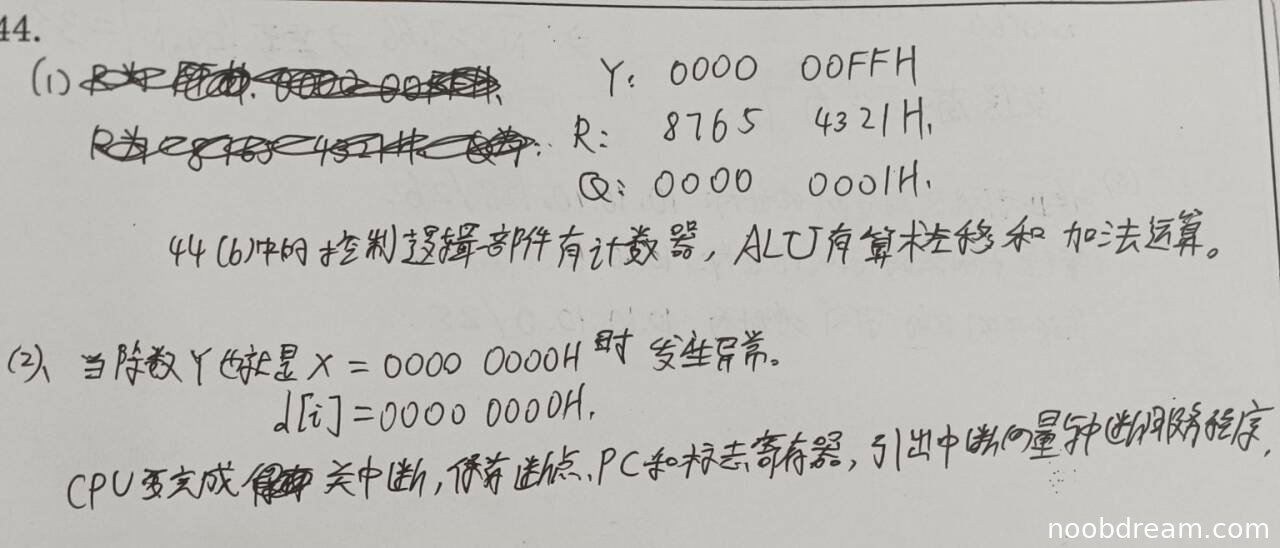 44.
(1) Y: 0000 00FFH
R: 8765 4321H.
Q: 0000 0001H.
44(b)中的控制逻辑部件有计数器, ALU有算术左移和加法运算。
(2)、当除数Y也就是X = 0000 0000H时发生异常。
d[i] = 0000 0000H.
CPU要完成关中断, 保存断点、PC和标志寄存器, 引出中断向量与中断服务程序,
noobdream.com